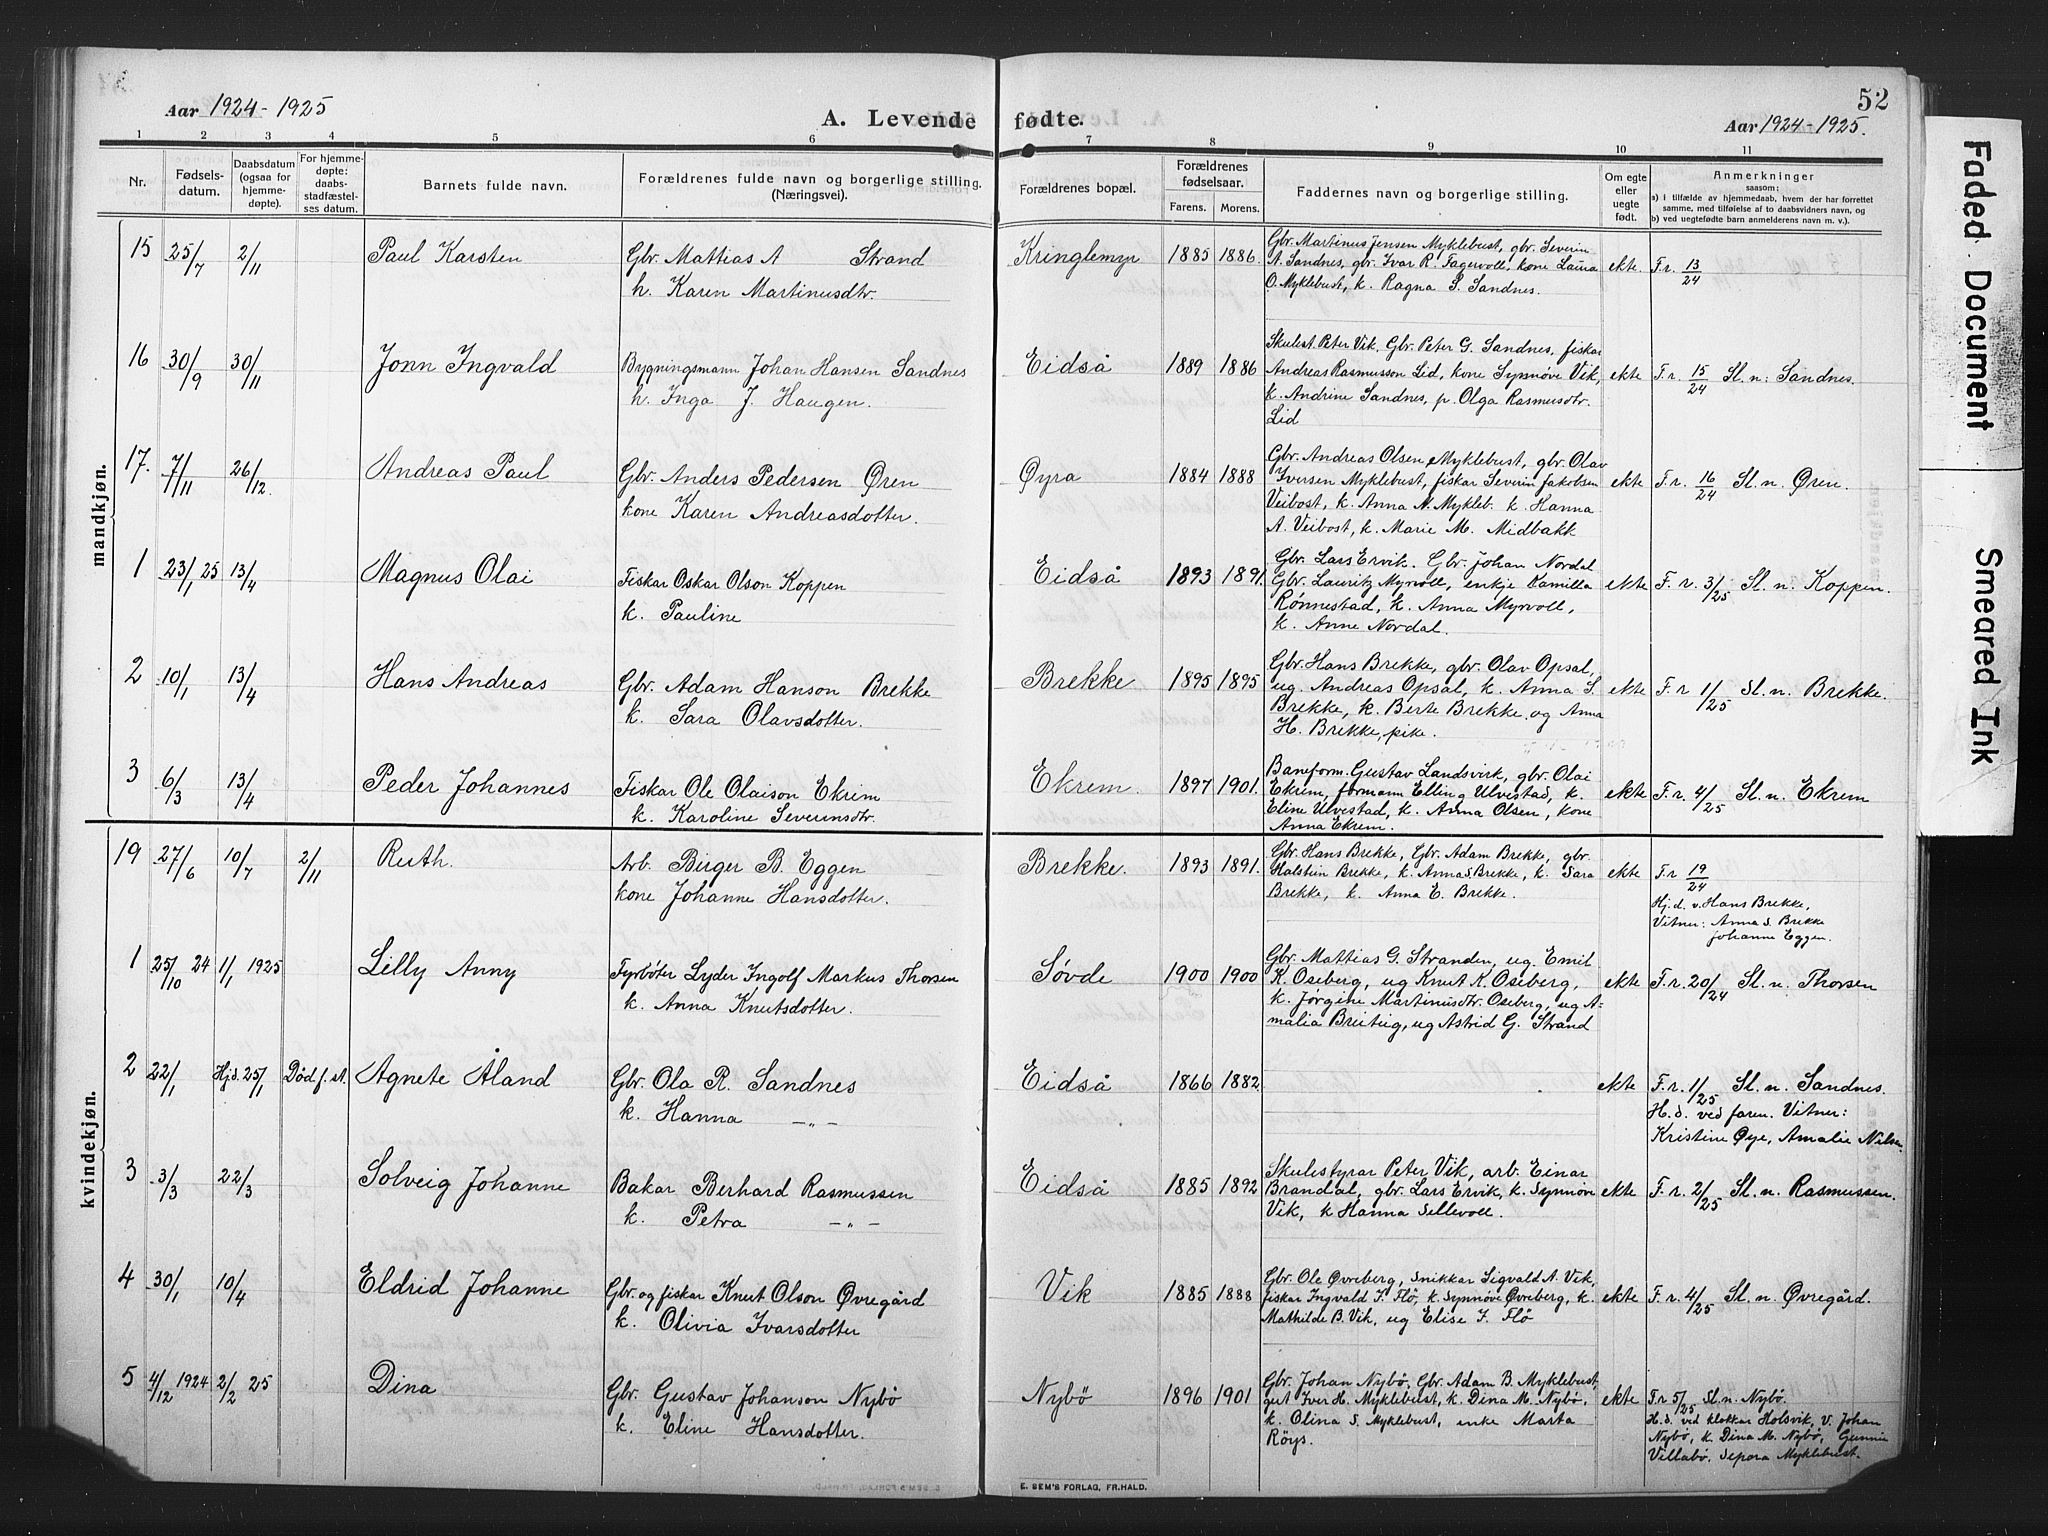 52
Aar 1924-1925
A. Levende fødte.
Aar 1924-1925.
1 2 3 4 5 6 7 8 9 10 11
Nr.
Fødsels-
datum.
Daabsdatum
(ogsaa for
hjemme-
døpte).
For hjemme-
døpte:
daabs-
stadfæstel-
ses datum.
Barnets fulde navn.
Forældrenes fulde navn og borgerlige stilling.
(Næringsvei).
Forældrenes bopæl.
Forældrenes
fødselsaar.
Farens. Morens.
Faddernes navn og borgerlige stilling.
Om egte
eller
uegte
født.
Anmerkninger
saasom:
a) i tilfælde av hjemmedaab, hvem der har forrettet
samme, med tilføielse av to daabsvidners navn, og
b) ved uegtefødte barn anmelderens navn m. v.).
mandkjøn.
15 25/7 2/11 Paul Karsten
Gbr. Mattias A Strand
h. Karen Martinusdtr.
Kringlemyr 1885 1886.
Gbr. Martinus Jensen Myklebust, gbr. Severin
A. Sandnes, gbr. Ivar R. Fagervoll, kone Laura
O. Myklebust, k. Ragna S. Sandnes.
ekte F.r. 13/24
16 30/9 30/11 Jonn Ingvald
Bygningsmann Johan Hansen Sandnes
h. Inga J. Haugen.
Eidså 1889 1886
Skulest. Peter Vik, Gbr. Peter G. Sandnes, fiskar
Andreas Rasmusson Lid, kone Synnøve Vik,
k. Andrine Sandnes, p. Olga Rasmusdtr.
Lid
ekte F.r. 15/24 Sl.n: Sandnes.
17. 7/11 26/12. Andreas Paul
Gbr. Anders Pedersen Øren
kone Karen Andreasdotter.
Øyra 1884 1888
Gbr. Andreas Olsen Myklebust, gbr. Olav
Iversen Myklebust, fiskar Severin Jakobsen
Veibost, k. Anna M. Mykleb. k. Hanna
A. Veibost, k. Marie M. Midbakk
ekte F.r. 16/24 Sl. n. Øren.
1 23/1 25 13/4 Magnus Olai
Fiskar Oskar Olson Koppen
k. Pauline
Eidså 1893 1891.
Gbr. Lars Ervik. Gbr. Johan Nordal
Gbr. Lauritz Myrvoll, enkje Kamilla
Rønnestad, k. Anna Myrvoll,
k. Anne Nordal.
ekte F. r. 3/25 Sl. n: Koppen.
2 10/1 13/4 Hans Andreas
Gbr. Adam Hanson Brekke
k. Sara Olavsdotter.
Brekke 1895 1895
Gbr. Hans Brekke, gbr. Olav Opsal,
ug. Andreas Opsal, k. Anna S.
Brekke, k. Berte Brekke og Anna
H. Brekke, pike.
ekte F. r 1/25 Sl. n. Brekke.
3 6/3 13/4 Peder Johannes
Fiskar Ole Olaison Ekrim
k. Karoline Severinsdtr.
Ekrem. 1897 1901.
Baneform. Gustav Landsvirk, gbr. Olai
Ekrem, formann Elling Ulvestad, k.
Eline Ulvestad, k. Anna Olsen, kone
Anna Ekrem.
ekte F. r. 4/25 Sl. n. Ekrem
kvindekjøn.
19 27/6 10/7 2/11 Ruth.
Arb. Birger B. Eggen
kone Johanne Hansdotter.
Brekke. 1893 1891.
Gbr. Hans Brekke, Gbr. Adam Brekke, gbr.
Halstein Brekke, k. Anna S Brekke, k. Sara
Brekke, k. Anna E. Brekke.
ekte F.r 19/24
Hj.d. v. Hans Brekke,
Vitner: Anna S. Brekke
Johanne Eggen.
1 25/10 24 1/1 1925 Lilly Anny
Fyrbøter Lyder Ingolf Markus Thorsen
k. Anna Knutsdotter.
Søvde 1900 1900
Gbr. Mattias G. Stranden, ug. Emil
K. Oseberg, ug Knut K. Oseberg,
k. Jørgine Martinusdtr. Oseberg, ug A-
malia Breiteig, ug Astrid G. Strand
ekte F.r. 20/24 Sl. n. Thorsen
2 22/1 Hjd. 25/1 Død f. st. Agnete Åland
Gbr. Ola R. Sandnes
k. Hanna —„—
Eidså 1866 1882.
ekte F.r. 1/25 Sl. n. Sandnes.
H.d. ved faren. Vitner:
Kristine Øye, Amalie Nilsen
3 3/3 22/3 Solveig Johanne
Bakar Berhard Rasmussen
k. Petra —„—
Eidså 1885 1892
Skulestyrar Peter Vik, arb. Einar
Brandal, gbr. Lars Ervik, k. Synnøve
Vik, k Hanna Sellevoll.
ekte F. r. 2/25 Sl. n. Rasmussen.
4 30/1 10/4 Eldrid Johanne
Gbr. og fiskar Knut Olson Øvregård
k. Olivia Ivarsdotter
Vik 1885 1888
Gbr. Ole Øvreberg, snikkar Sigvald A. Vik,
fiskar Ingvald I. Flø, k. Synnøve Øvreberg, k.
Mathilde B. Vik, ug Elise I. Flø
ekte F. r. 4/25 Sl. n. Øvregård.
5 4/12 1924 2/2 25 Dina
Gbr. Gustav Johanson Nybø
k. Eline Hansdotter.
Nybö 1896 1901
Gbr. Johan Nybø, Gbr. Adam B. Myklebust,
gut Iver H. Myklebust, k. Dina M. Nybø,
k. Olina S. Myklebust, enke Marta
Röys.
ekte F.r 5/25 Sl. n. Nybø.
H.d. ved klokkar Holsvik, V. Johan
Nybø, k. Dina M. Nybø, Gunnie
Villabø, Sepora Myklebust.
E. SEM'S FORLAG, FR.HALD.
Faded Document
Smeared Ink